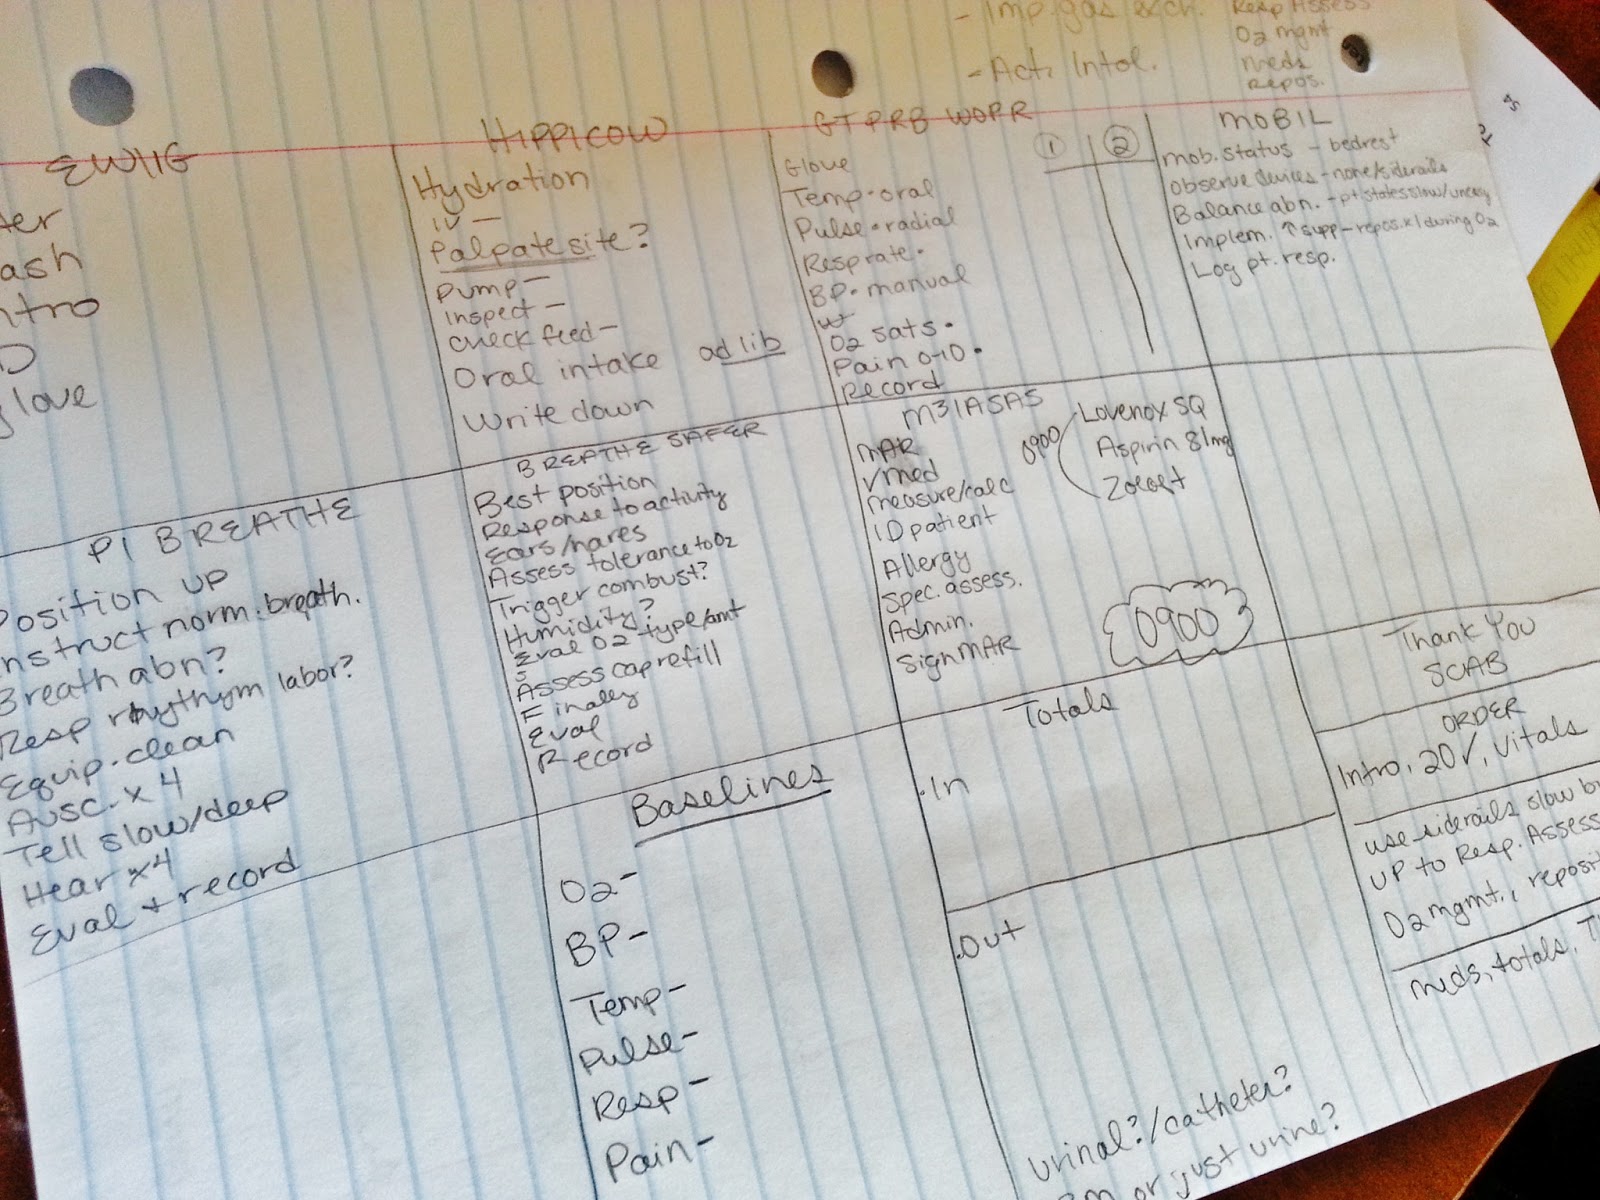 - Imp. gas exch.
- Act. Intol.
Resp Assess
O2 mgmt
Meds
Repos.
EWIIG
ash
ntro
D
love
HIPPICOW
Hydration
IV -
Palpate site?
Pump -
Inspect -
Check feed -
Oral intake ad lib
Write down
GTPRB WOPR
① ②
Glove
Temp • oral
Pulse • radial
Resp rate •
BP • manual
W
O2 sats •
Pain 0-10 •
Record
MOBIL
Mob. status - bedrest
Observe devices - none/siderails
Balance abn. - pt states slow/uneasy
Implem. ↑ supp - repos. x1 during O2
Log pt. resp.
PI BREATHE
Position up
nstruct norm. breath.
Breath abn?
Resp rhythym labor?
Equip. clean
Ausc. x 4
Tell slow/deep
Hear x4
Eval + record
BREATHE SAFER
Best position
Response to activity
Ears/nares
Assess tolerance to O2
Trigger combust?
Humidity?
Eval O2 type/amt
S
Assess cap refill
Finally
Eval
Record
M31ASAS
MAR
√med
Measure/calc
ID patient
Allergy
Spec. assess.
Admin.
Sign MAR
0900
Lovenox SQ
Aspirin 81mg
Zoloft
0900
Thank You
SCIAB
ORDER
Intro, 20√, Vitals
use siderails slow
up to Resp. Assess
O2 mgmt., reposit
meds, totals, T
Baselines
O2-
BP-
Temp-
Pulse-
Resp-
Pain-
Totals
• In
• Out
urinal?/catheter?
or just urine?